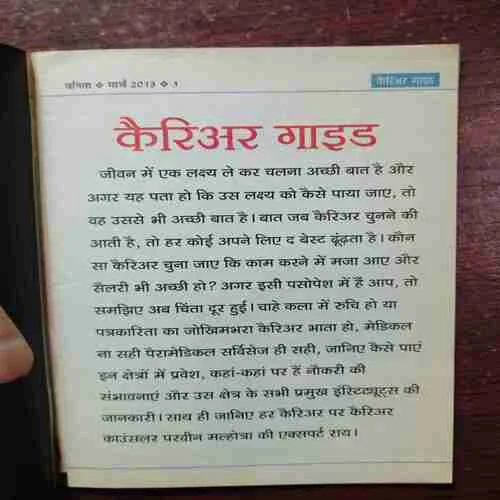 वनिता ❖ मार्च 2013 ❖ 1
कैरिअर गाइड
कैरिअर गाइड
जीवन में एक लक्ष्य ले कर चलना अच्छी बात है और
अगर यह पता हो कि उस लक्ष्य को कैसे पाया जाए, तो
वह उससे भी अच्छी बात है। बात जब कैरिअर चुनने की
आती है, तो हर कोई अपने लिए द बेस्ट ढूंढ़ता है। कौन
सा कैरिअर चुना जाए कि काम करने में मजा आए और
सैलरी भी अच्छी हो? अगर इसी पसोपेश में हैं आप, तो
समझिए अब चिंता दूर हुई। चाहे कला में रुचि हो या
पत्रकारिता का जोखिमभरा कैरिअर भाता हो, मेडिकल
ना सही पैरामेडिकल सर्विसेज ही सही, जानिए कैसे पाएं
इन क्षेत्रों में प्रवेश, कहां-कहां पर हैं नौकरी की
संभावनाएं और उस क्षेत्र के सभी प्रमुख इंस्टिट्यूट्स की
जानकारी। साथ ही जानिए हर कैरिअर पर कैरिअर
काउंसलर परवीन मल्होत्रा की एक्सपर्ट राय।